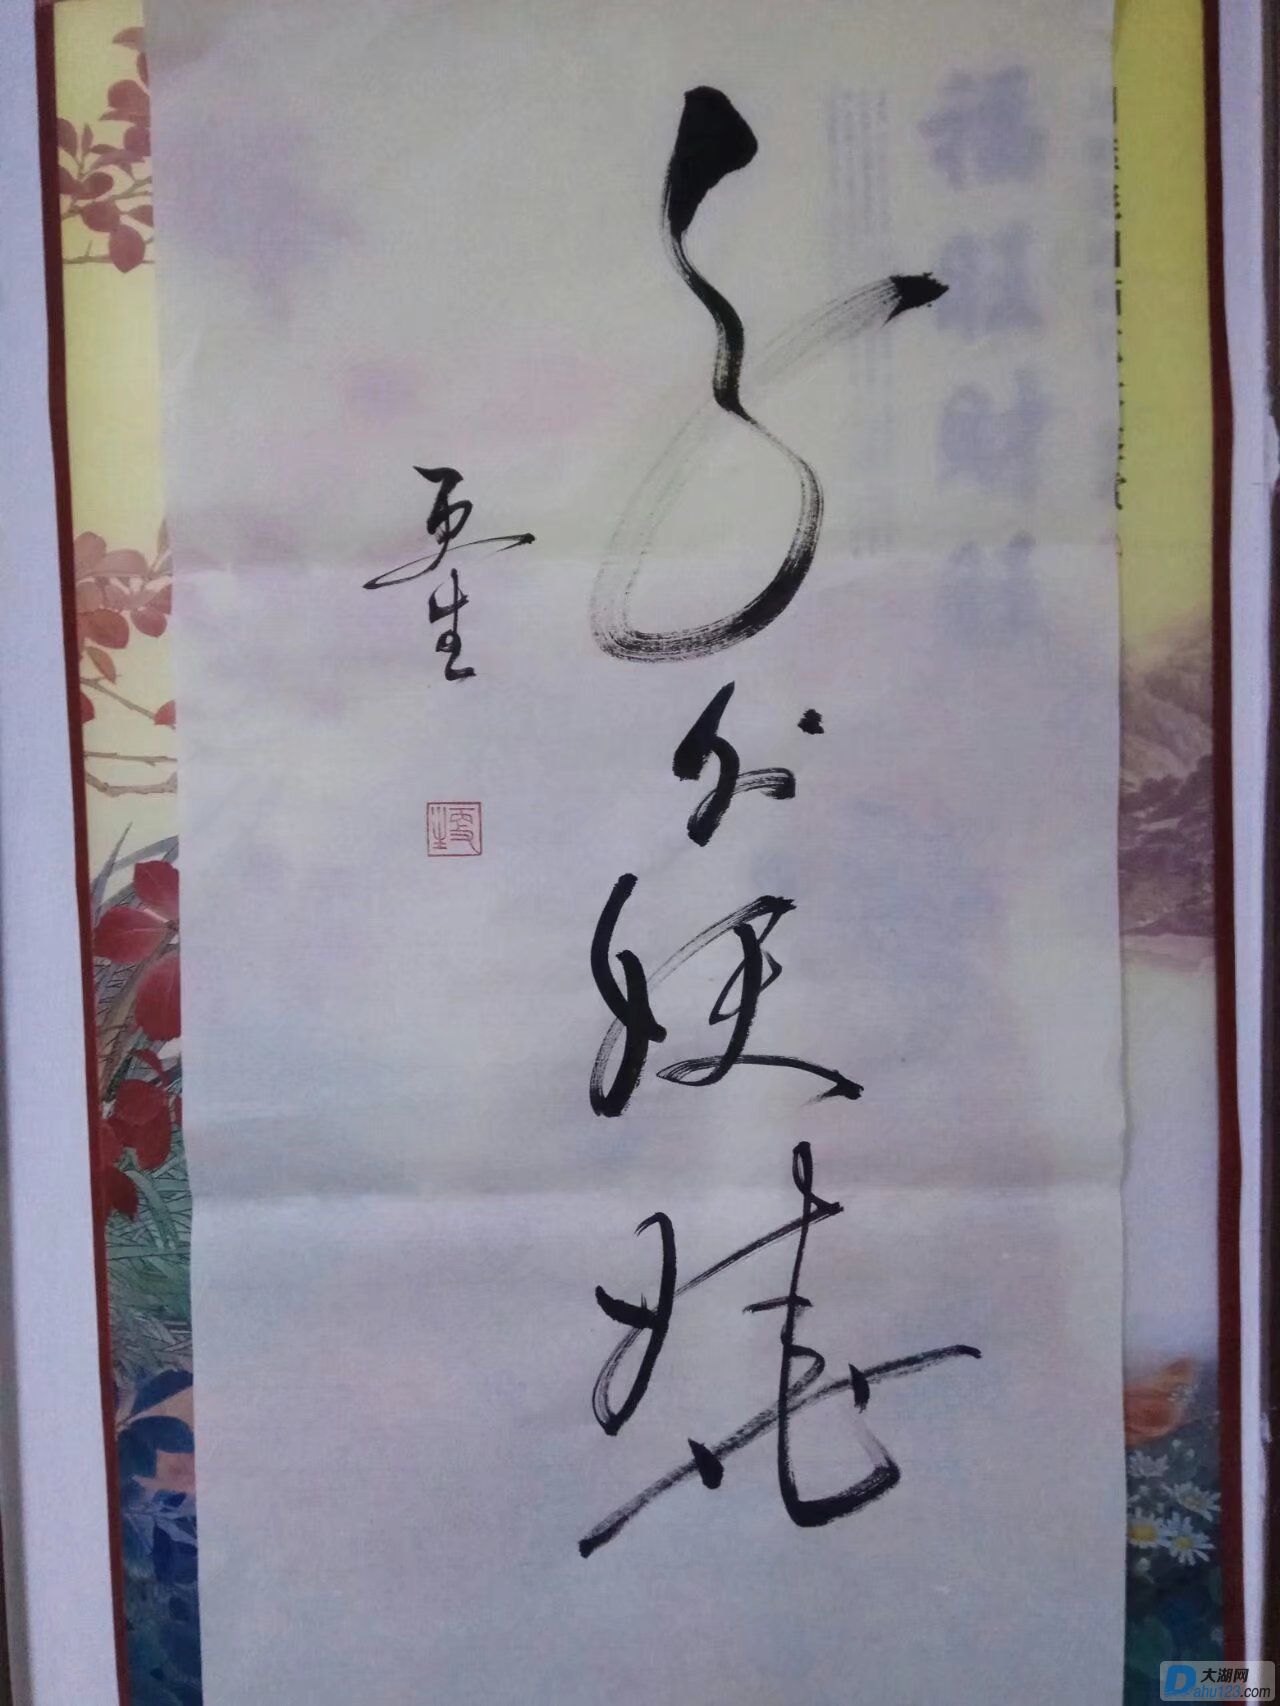 分外妖娆
更生
更生
大湖网
Dahu123.com